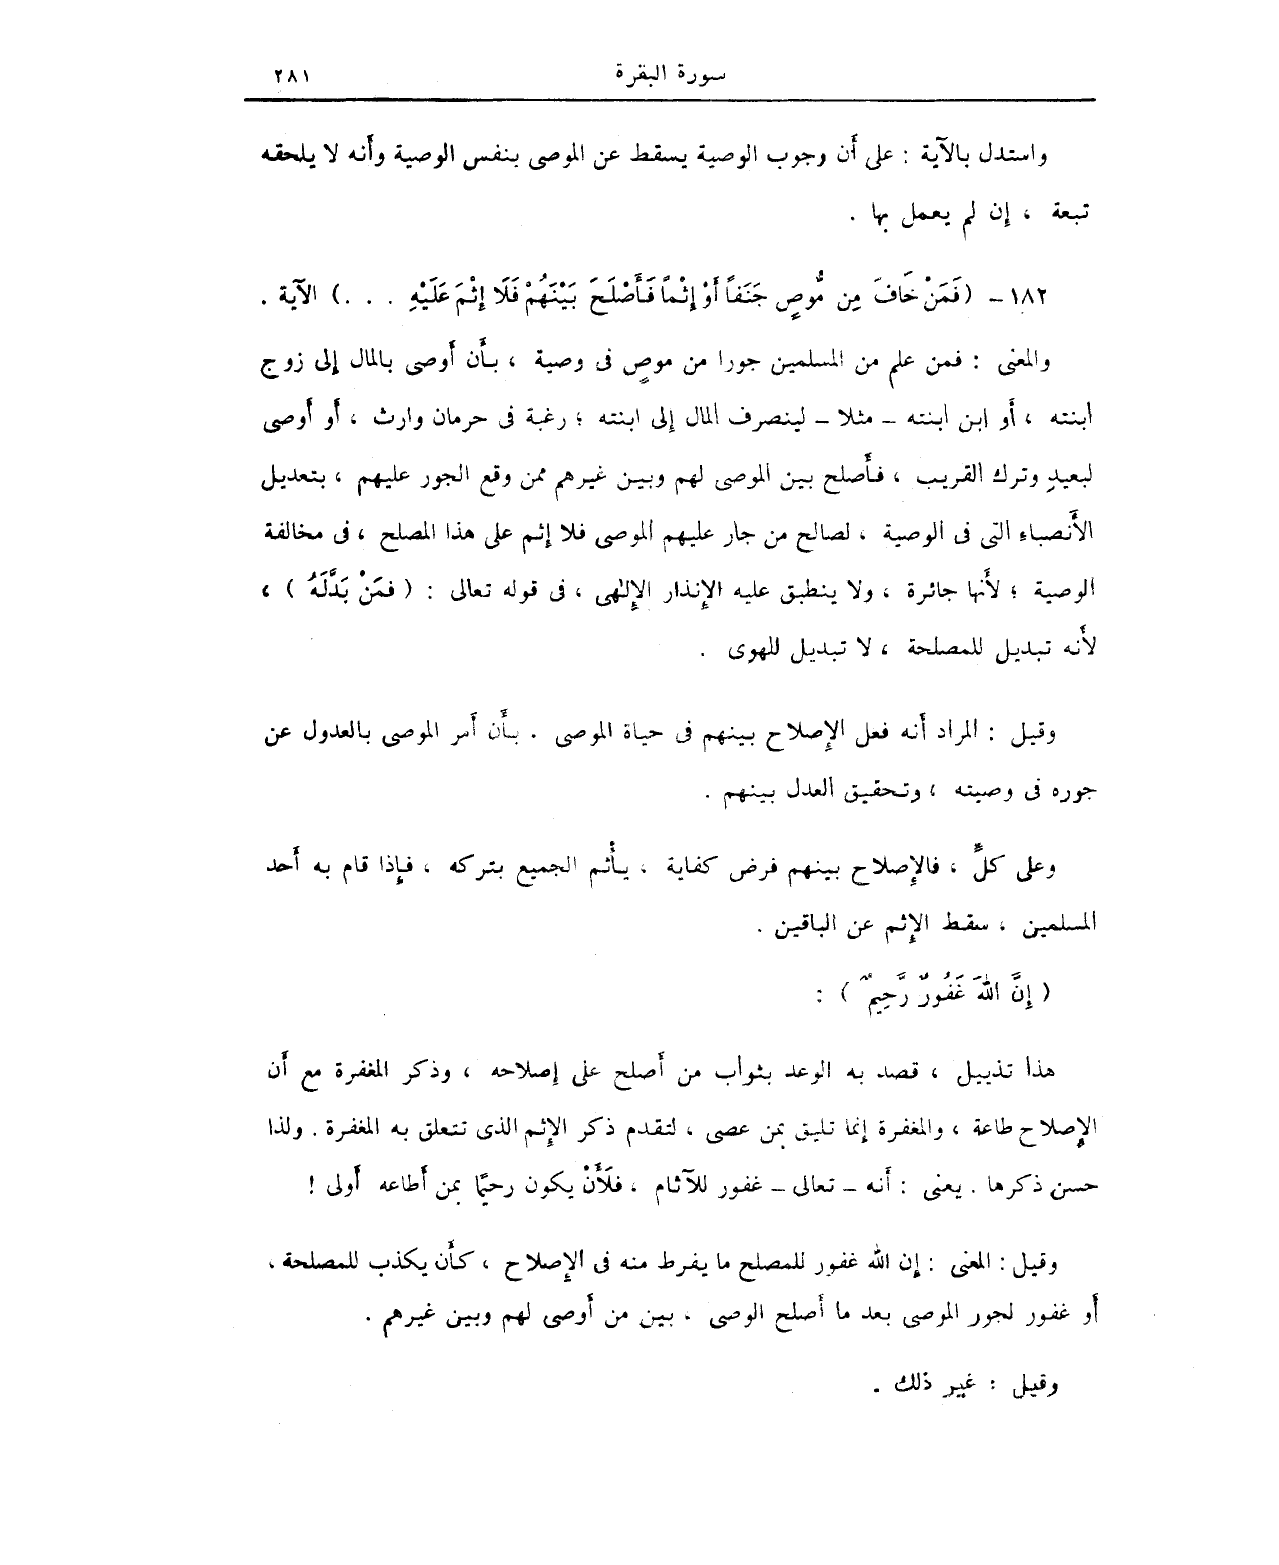 سورة البقرة ٢٨١
واستدل بالآية : على أن وجوب الوصية يسقط عن الموصى بنفس الوصية وأنه لا يلحقه
تبعة ، إن لم يعمل بها .
١٨٢ – (فَمَنْ خَافَ مِن مُّوصٍ جَنَفاً أَوْ إِثْماً فَأَصْلَحَ بَيْنَهُمْ فَلَا إِثْمَ عَلَيْهِ . . .) الآية .
والمعنى : فمن علم من المسلمين جورا من موصٍ فى وصية ، بأن أوصى بالمال إلى زوج
ابنته ، أو ابن ابنته – مثلا – لينصرف المال إلى ابنته ؛ رغبة فى حرمان وارث ، أو أوصى
لبعيدٍ وترك القريب ، فأصلح بين الموصى لهم وبين غيرهم ممن وقع الجور عليهم ، بتعديل
الأنصباء التى فى الوصية ، لصالح من جار عليهم الموصى فلا إثم على هذا المصلح ، فى مخالفة
الوصية ؛ لأنها جائرة ، ولا ينطبق عليه الإنذار الإلٰهى ، فى قوله تعالى : ( فَمَنْ بَدَّلَهُ ) ،
لأنه تبديل للمصلحة ، لا تبديل للهوى .
وقيل : المراد أنه فعل الإصلاح بينهم فى حياة الموصى . بأن أمر الموصى بالعدول عن
جوره فى وصيته ، وتحقيق العدل بينهم .
وعلى كلٍّ ، فالإصلاح بينهم فرض كفاية ، يأْثم الجميع بتركه ، فإذا قام به أحد
المسلمين ، سقط الإثم عن الباقين .
( إِنَّ اللهَ غَفُورٌ رَّحِيمٌ ) :
هذا تذييل ، قصد به الوعد بثواب من أصلح على إصلاحه ، وذكر المغفرة مع أن
الإصلاح طاعة ، والمغفرة إنما تليق بمن عصى ، لتقدم ذكر الإثم الذى تتعلق به المغفرة . ولذا
حسن ذكرها . يعنى : أنه – تعالى – غفور للآثام ، فلَأَنْ يكون رحيمًا بمن أطاعه أولى !
وقيل : المعنى : إن الله غفور للمصلح ما يفرط منه فى الإصلاح ، كأن يكذب للمصلحة ،
أو غفور لجور الموصى بعد ما أصلح الوصى ، بين من أوصى لهم وبين غيرهم .
وقيل : غير ذلك .